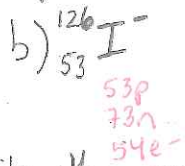 b) ¹²⁶₅₃I⁻
53p
73n
54e⁻